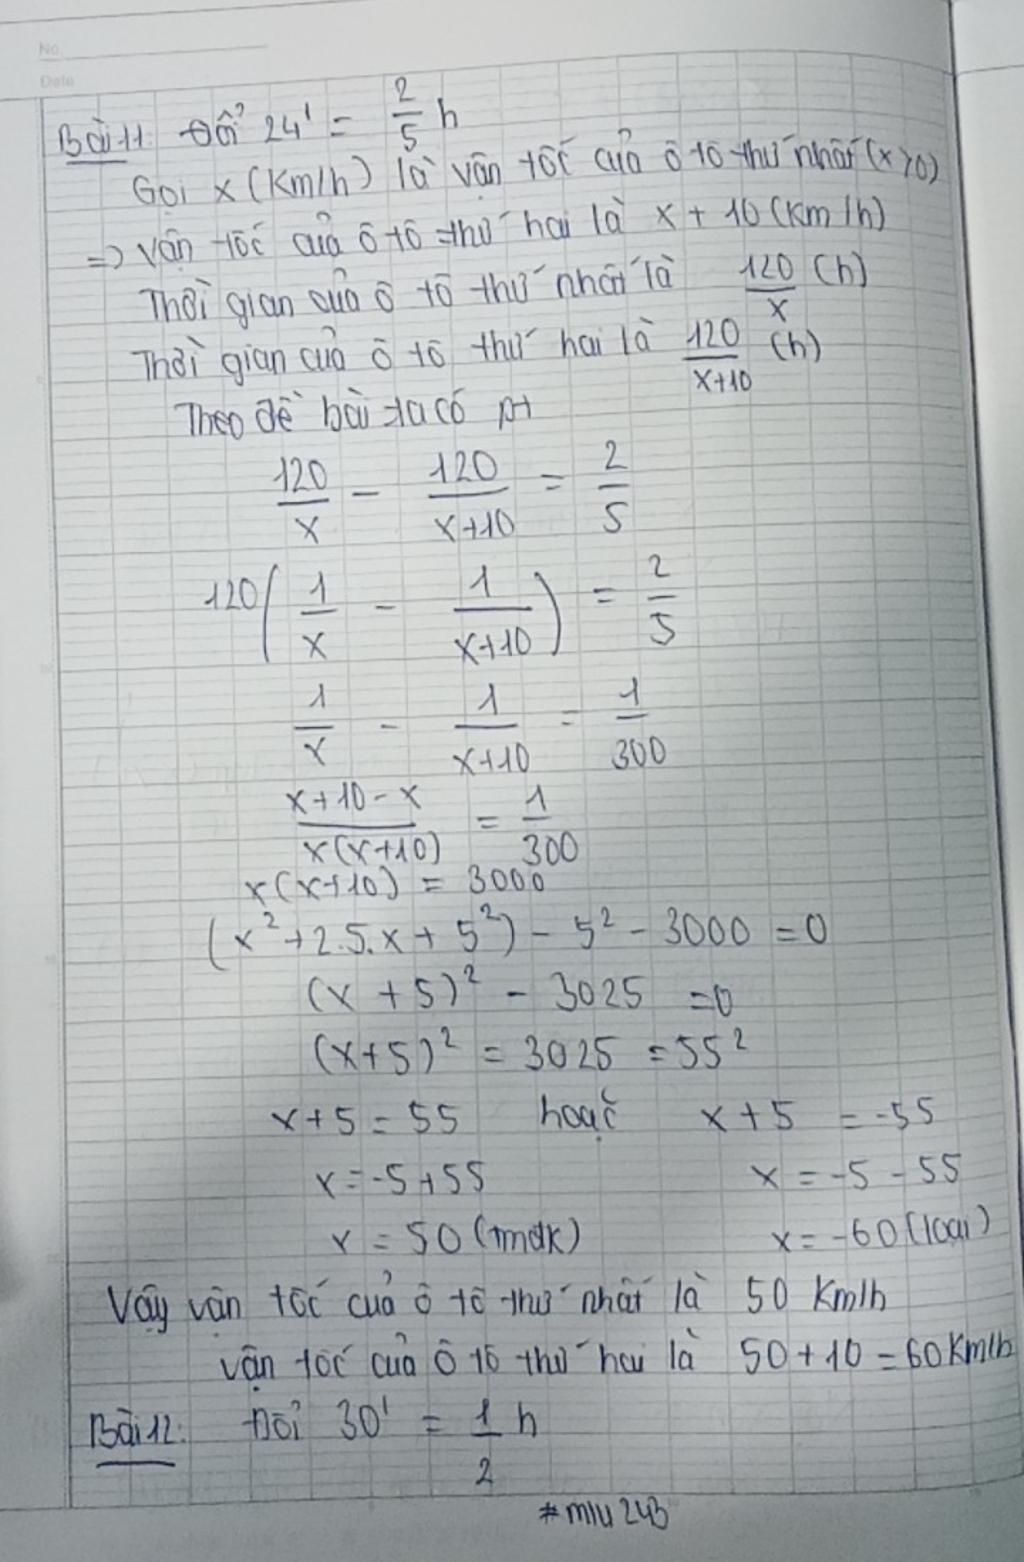 No.
Date
Bài 11: Đổi 24' = 2/5 h
Gọi x (Km/h) là vận tốc của ô tô thứ nhất (x>0)
=> vận tốc của ô tô thứ hai là x + 10 (Km/h)
Thời gian của ô tô thứ nhất là 120/x (h)
Thời gian của ô tô thứ hai là 120/(x+10) (h)
Theo đề bài ta có pt
120/x - 120/(x+10) = 2/5
120(1/x - 1/(x+10)) = 2/5
1/x - 1/(x+10) = 1/300
(x+10-x)/(x(x+10)) = 1/300
x(x+10) = 3000
(x² + 2.5.x + 5²) - 5² - 3000 = 0
(x + 5)² - 3025 = 0
(x+5)² = 3025 = 55²
x+5 = 55 hoặc x+5 = -55
x = -5+55 x = -5-55
x = 50 (tmđk) x = -60 (loại)
Vậy vận tốc của ô tô thứ nhất là 50 Km/h
vận tốc của ô tô thứ hai là 50+10 = 60 Km/h
Bài 12: Đổi 30' = 1/2 h
#miu243